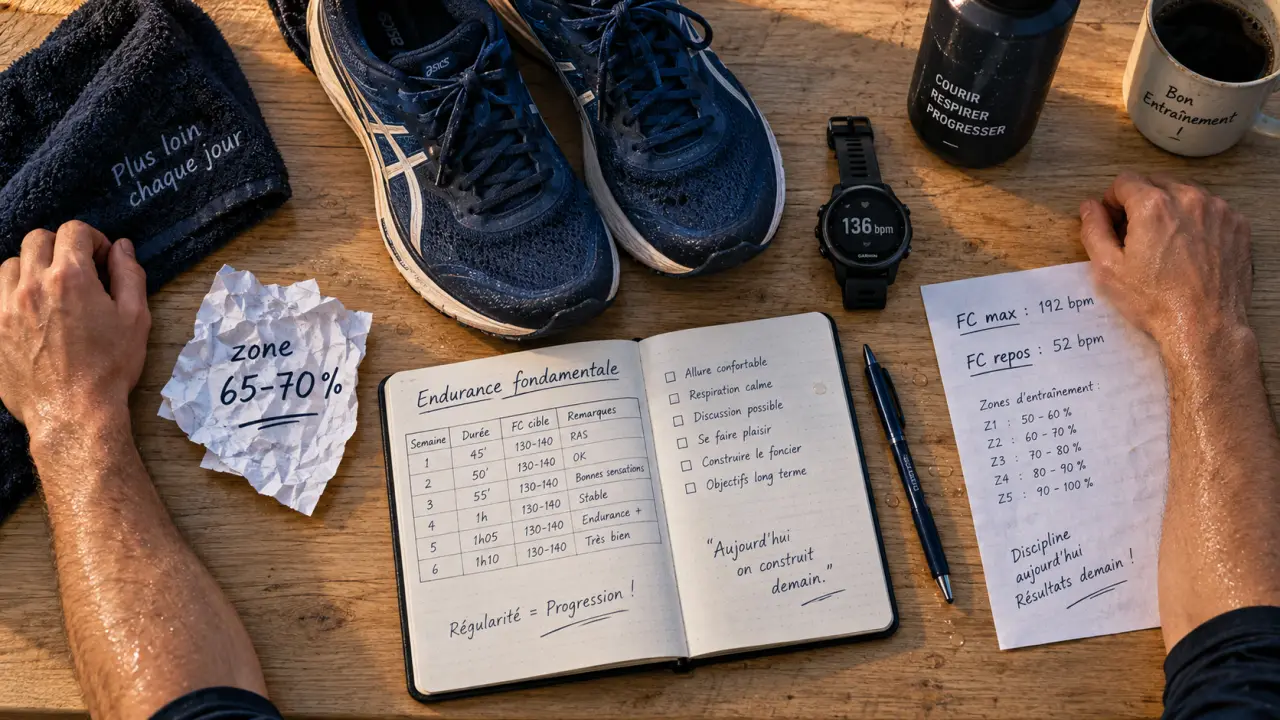 Plus loin
chaque jour
asics
asics
COURIR
RESPIRER
PROGRESSER
Bon
Entraînement
!
136 bpm
GARMIN
zone
65-70 %
Endurance fondamentale
Semaine Durée FC cible Remarques
1 45' 130-140 RAS
2 50' 130-140 OK
3 55' 130-140 Bonnes sensations
4 1h 130-140 Stable
5 1h05 130-140 Endurance +
6 1h10 130-140 Très bien
Régularité = Progression !
Allure confortable
Respiration calme
Discussion possible
Se faire plaisir
Construire le foncier
Objectifs long terme
"Aujourd'hui
on construit
demain."
FC max : 192 bpm
FC repos : 52 bpm
Zones d'entraînement :
Z1 : 50 - 60 %
Z2 : 60 - 70 %
Z3 : 70 - 80 %
Z4 : 80 - 90 %
Z5 : 90 - 100 %
Discipline
aujourd'hui
Résultats demain !